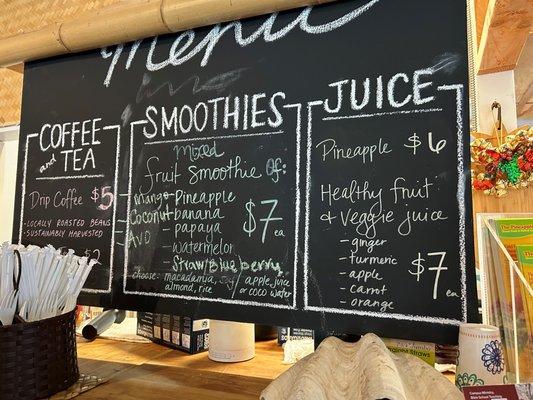 Menu
COFFEE
and TEA
Drip Coffee $5
- LOCALLY ROASTED BEANS
- SUSTAINABLY HARVESTED
SMOOTHIES
mixed
fruit Smoothie of:
- mango - Pineapple
- Coconut - banana
- Avo - papaya
- watermelon
- Straw/Blueberry
$7 ea
choose: macadamia, soy, / apple juice
almond, rice / or coco water
JUICE
Pineapple $6
Healthy fruit
& Veggie juice
- ginger
- turmeric
- apple
- carrot
- orange
$7 ea